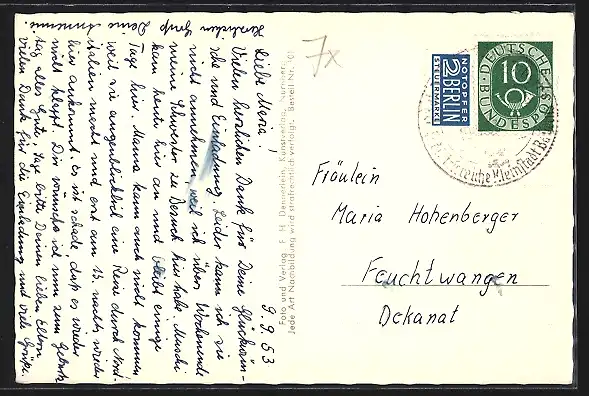 9.9.53
Liebe Mena!
Vielen herzlichen Dank für Deine Glückwün-
sche und Einladung. Leider kann ich sie
nicht annehmen, weil ich übers Wochenende
meine Schwester zu Besuch hier habe. Muschi
kam heute hier an und bleibt einige
Tage hier. Mama kann auch nicht kommen
weil sie augenblicklich eine Reise durch Nord-
italien macht und erst am 13. nachts wieder
hier ankommt. Es ist schade, daß es wieder
nicht klappt. Dir wünsche ich nun zum Geburts-
tag alles Gute, sage bitte Deinen lieben Eltern
vielen Dank für die Einladung und viele Grüße.
Herzlichen Gruß Deine Annemie
Foto und Verlag F. H. Deuerlein, Kunstverlag, Nürnberg Bestell Nr. 101
Jede Art Nachbildung wird strafrechtlich verfolgt.
7x
NOTOPFER
2 BERLIN
STEUERMARKE
DEUTSCHE
10
BUNDESPOST
Kleinstadt
Fräulein
Maria Hohenberger
Feuchtwangen
Dekanat